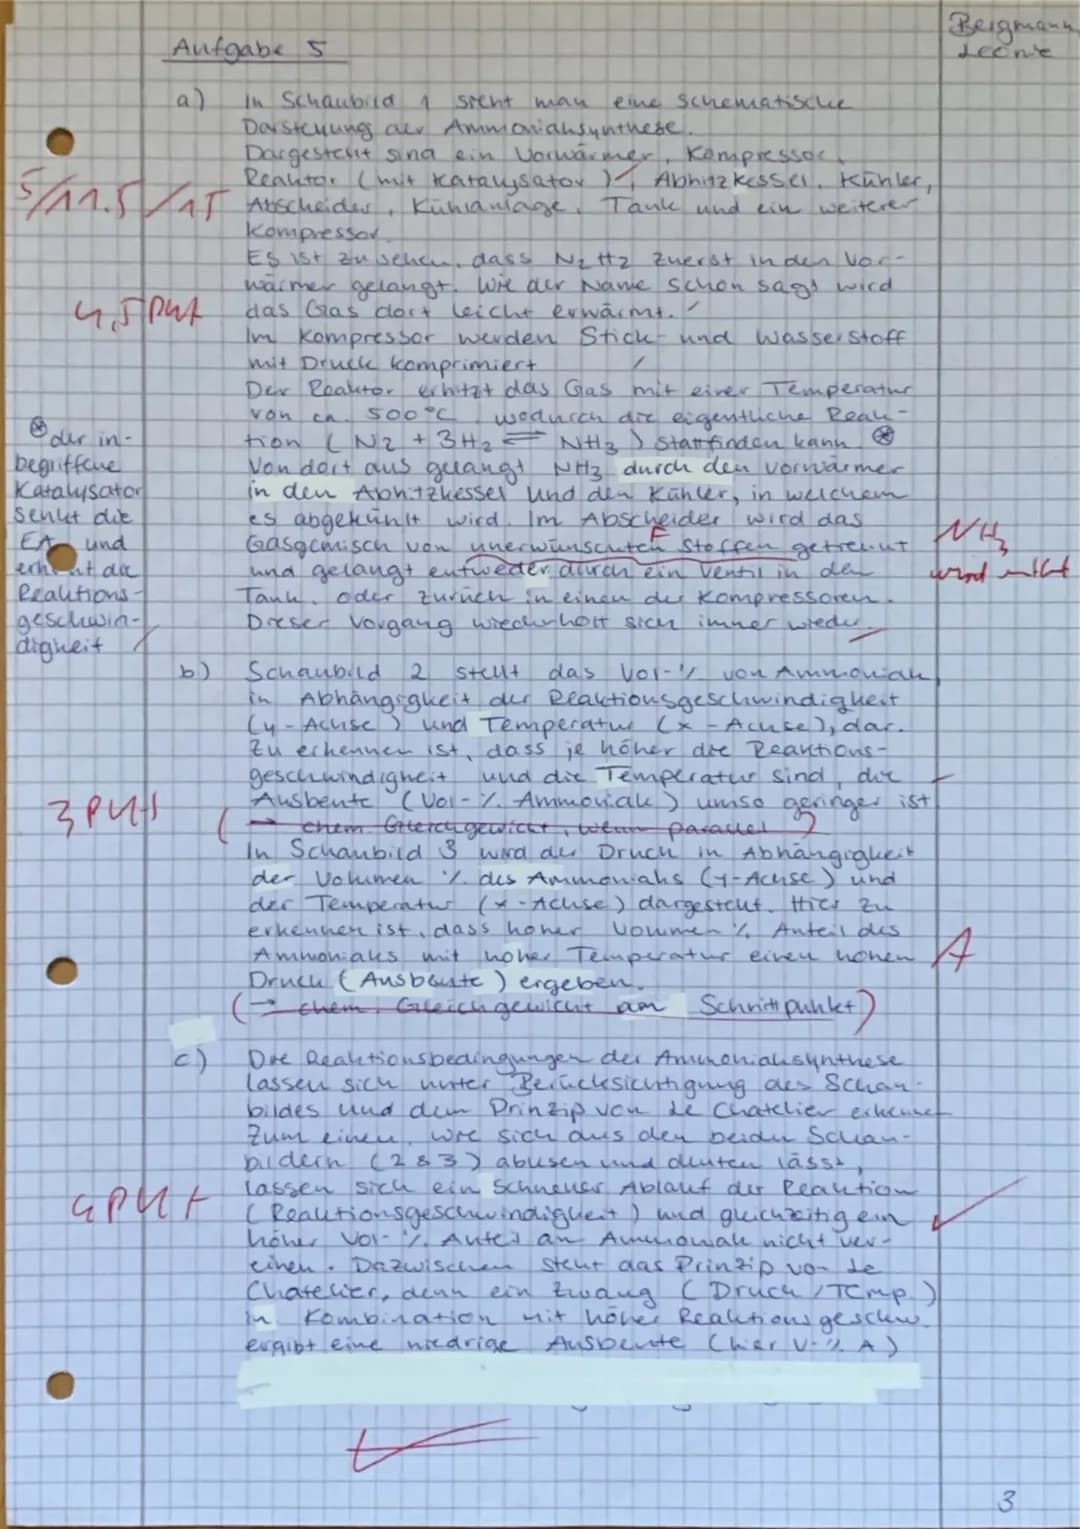 Bergmann,
Leonie
Aufgabe 5
a) In Schaubild 1 sieht man eine schematische
Darstellung der Ammoniaksynthese.
Dargestellt sind ein Vorwärmer, Kompressor,
Reaktor (mit Katalysator), Abhitzkessel, Kühler,
5/11.5/15
Abscheider, Kühlanlage, Tank und ein weiterer
Kompressor.
Es ist zu sehen, dass N2 H2 zuerst in den Vor-
wärmer gelangt. Wie der Name schon sagt wird
4,5 Pkt
das Gas dort leicht erwärmt.
Im Kompressor werden Stick- und Wasserstoff
mit Druck komprimiert
Der Reaktor erhitzt das Gas mit einer Temperatur
von ca. 500°C, wodurch die eigentliche Reak-
tion (N2 + 3H2 ⇌ NH3) stattfinden kann. ⊛
⊛ der in-
begriffene
Katalysator
senkt die
EA und
erhöht die
Reaktions-
geschwin-
digkeit
Von dort aus gelangt NH3 durch den Vorwärmer
in den Abhitzkessel und den Kühler, in welchem
es abgekühlt wird. Im Abscheider wird das
Gasgemisch von unerwünschten Stoffen getrennt
F
NH3
wird nicht
und gelangt entweder durch ein Ventil in den
Tank, oder zurück in einen der Kompressoren.
Dieser Vorgang wiederholt sich immer wieder.
b) Schaubild 2 stellt das Vol-% von Ammoniak,
in Abhängigkeit der Reaktionsgeschwindigkeit
(y-Achse) und Temperatur (x-Achse), dar.
Zu erkennen ist, dass je höher die Reaktions-
geschwindigkeit und die Temperatur sind, die
3 Pkt
Ausbeute (Vol-% Ammoniak) umso geringer ist
(→ chem. Gleichgewicht, wenn parallel)
In Schaubild 3 wird der Druck in Abhängigkeit
der Volumen % des Ammoniaks (Y-Achse) und
der Temperatur (x-Achse) dargestellt. Hier zu
erkennen ist, dass hoher Volumen % Anteil des
Ammoniaks mit hoher Temperatur einen hohen
A
Druck (Ausbeute) ergeben.
(→ chem. Gleichgewicht am Schnittpunkt)
c) Die Reaktionsbedingungen der Ammoniaksynthese
lassen sich unter Berücksichtigung des Schau-
bildes und dem Prinzip von Le Chatelier erkennen
Zum einen, wie sich aus den beiden Schau-
bildern (2&3) ablesen und deuten lässt,
4 Pkt
lassen sich ein schneller Ablauf der Reaktion
(Reaktionsgeschwindigkeit) und gleichzeitig ein
hoher Vol-% Anteil an Ammoniak nicht ver-
einen. Dazwischen steht das Prinzip von Le
Chatelier, denn ein Zwang (Druck/Temp.)
in Kombination mit hoher Reaktionsgeschw.
ergibt eine niedrige Ausbeute (hier V-% A)
3